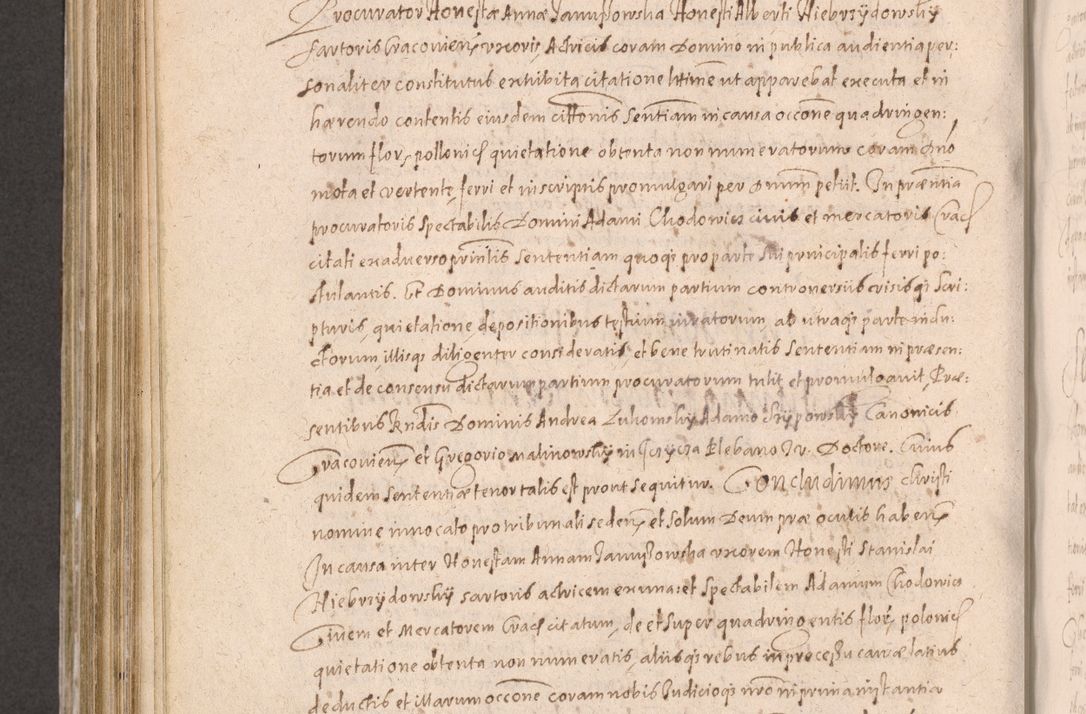 Procurator Honestæ Annæ Janussowska Honesti Alberti Niebrzydowsky
sartoris Cracovieñ uxoris Actricis coram Domino in publica audientia per:
sonaliter constitutus exhibita citatione littme ut apparebat executa et in
hærendo contentis eiusdem cittonis Sententiam in causa occone quadringen:
torum flor, pollonicˢ quietatione obtenta non numeratorum coram dno
mota et vertente ferri et in scriptis promulgari per Dnum petiit. In præntia
procuratoris Spectabilis Domini Adami Chodowicz civis et mercatoris Cracˢ
citati ex adverso prinlis Sententiam quoqs pro parte sui principalis ferri po:
stulantis. Et Dominus auditis dictarum partium controversiis visisqs Scri:
pturis, quietatione, depositionibus testium iuratorum, ab utraqs parte indu:
ctorum, illisqs diligenter consideratis, et bene trutinatis Sententiam in præsen:
tia et de consensu dictarum partium procuratorum tulit et promulgavit, Præ:
sentibus Rndis Dominis Andrea Lukomsky Adamo Strypowsky Canonicis
Cracovieñ et Gregorio Malinowsky in Jczycza Plebano Jv. Doctore. Cuius
quidem sententiæ tenor talis est prout sequitur. Concludimus Christi
nomine invocato pro tribunali sedeñ et solum Deum præ oculis habeñ
In causa inter Honestam Annam Janussowska uxorem Honesti Stanislai
Niebrzydowsky sartoris actricem ex una: et Spectabilem Adamum Chodowicz
Civem et Mercatorem Cracˢ citatum, de et super quadringentis flor, polonicˢ
quietatione obtenta non numeratis, aliisqs rebus in processu causæ latius
deductis et illarum occone coram nobis Judicioqs nro in prima instantia